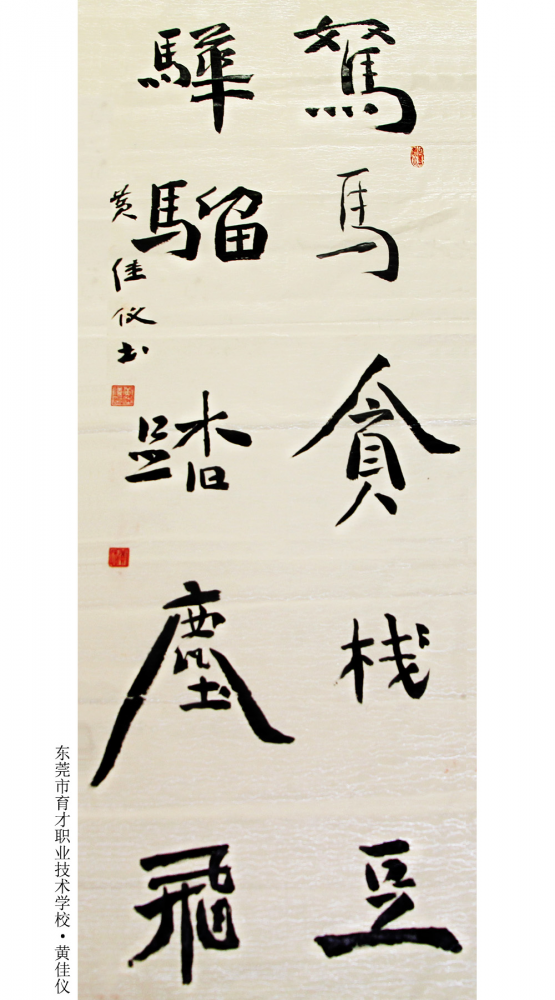 駑馬貪栈豆
驊騮踏塵飛
黄佳仪书
东莞市育才职业技术学校·黄佳仪